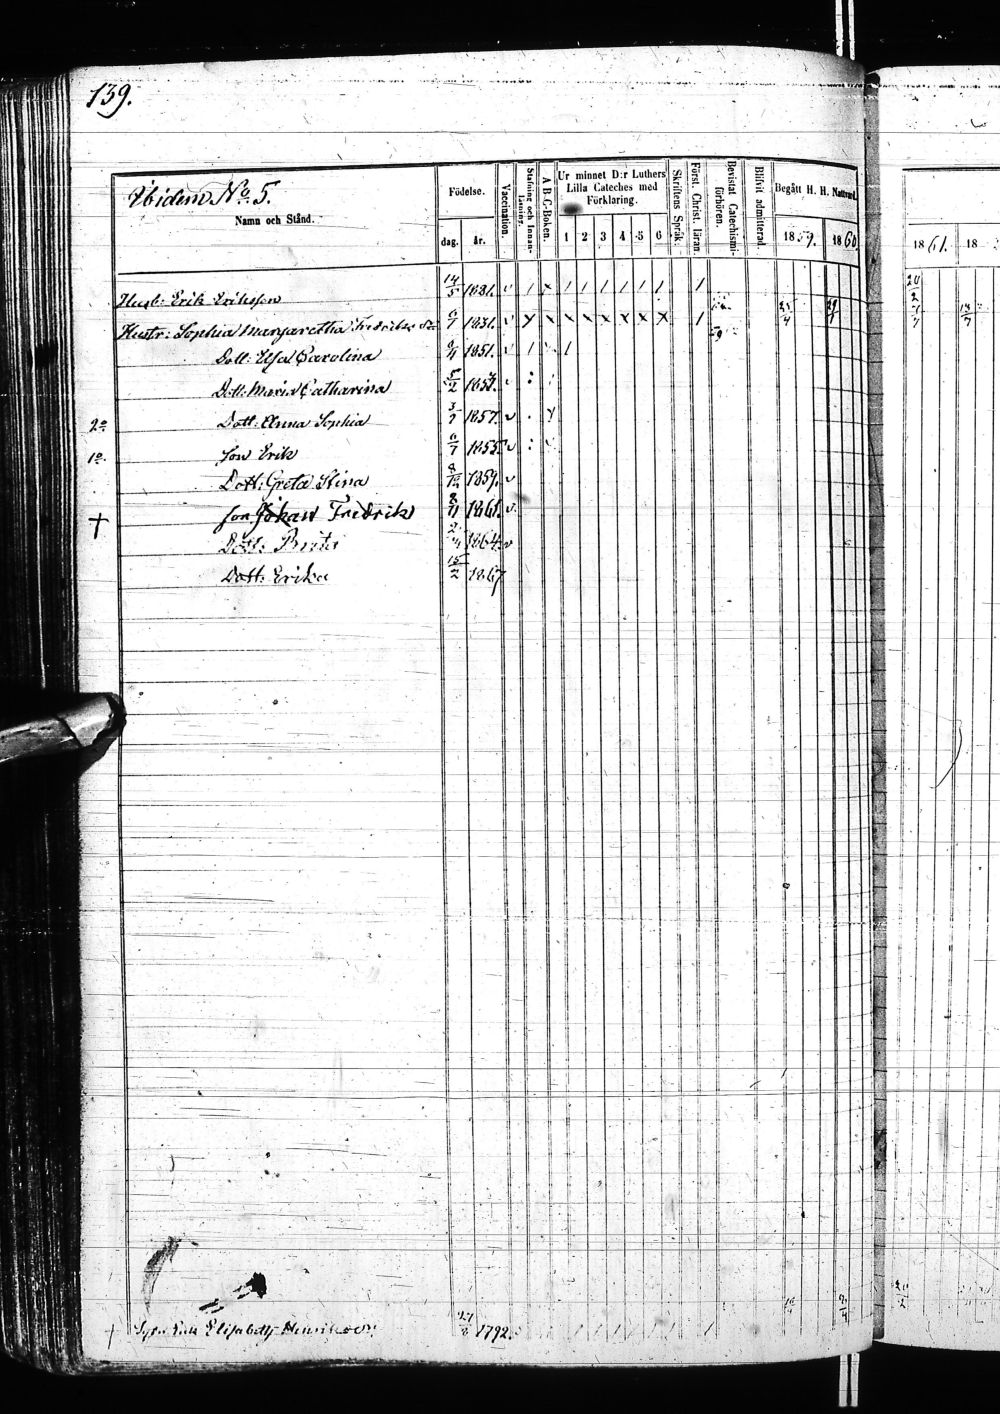 139.
Ibidem No 5.
Namn och Stånd.
Födelse.
dag. år.
Vaccination.
Stafning och Innan-
läsning.
A-B-C-Boken.
Ur minnet D:r Luthers
Lilla Cateches med
Förklaring.
1 2 3 4 5 6
Skriftens Språk.
Först. Christ. läran.
Bevistat Catechismi-
förhören.
Blifvit admitterad.
Begått H. H. Nattvard.
1859. 1860.
1861. 18
Husb: Erik Eriksson 14/5 1831. v / x / / / / / / /
Hustr: Sophia Margaretha Fredriks 6/7 1831. v x x x x x x x x /
Dott: Elsa Carolina 1851. v / /
Dott: Maria Catharina 5/2
2o Dott: Anna Sophia 3/7 1857. v
1o Son Erik 6/7 1855. v
Dott: Greta Stina 1859. v
† son Johan Fredrik 1861. v
Dott: Brita 1864. v
Dott: Erika 15/2 1867
† Elisabeth Henriksdr 1792.